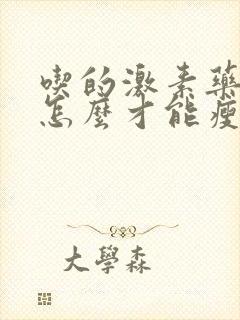 喫的激素藥
怎麼才能瘦
大學森